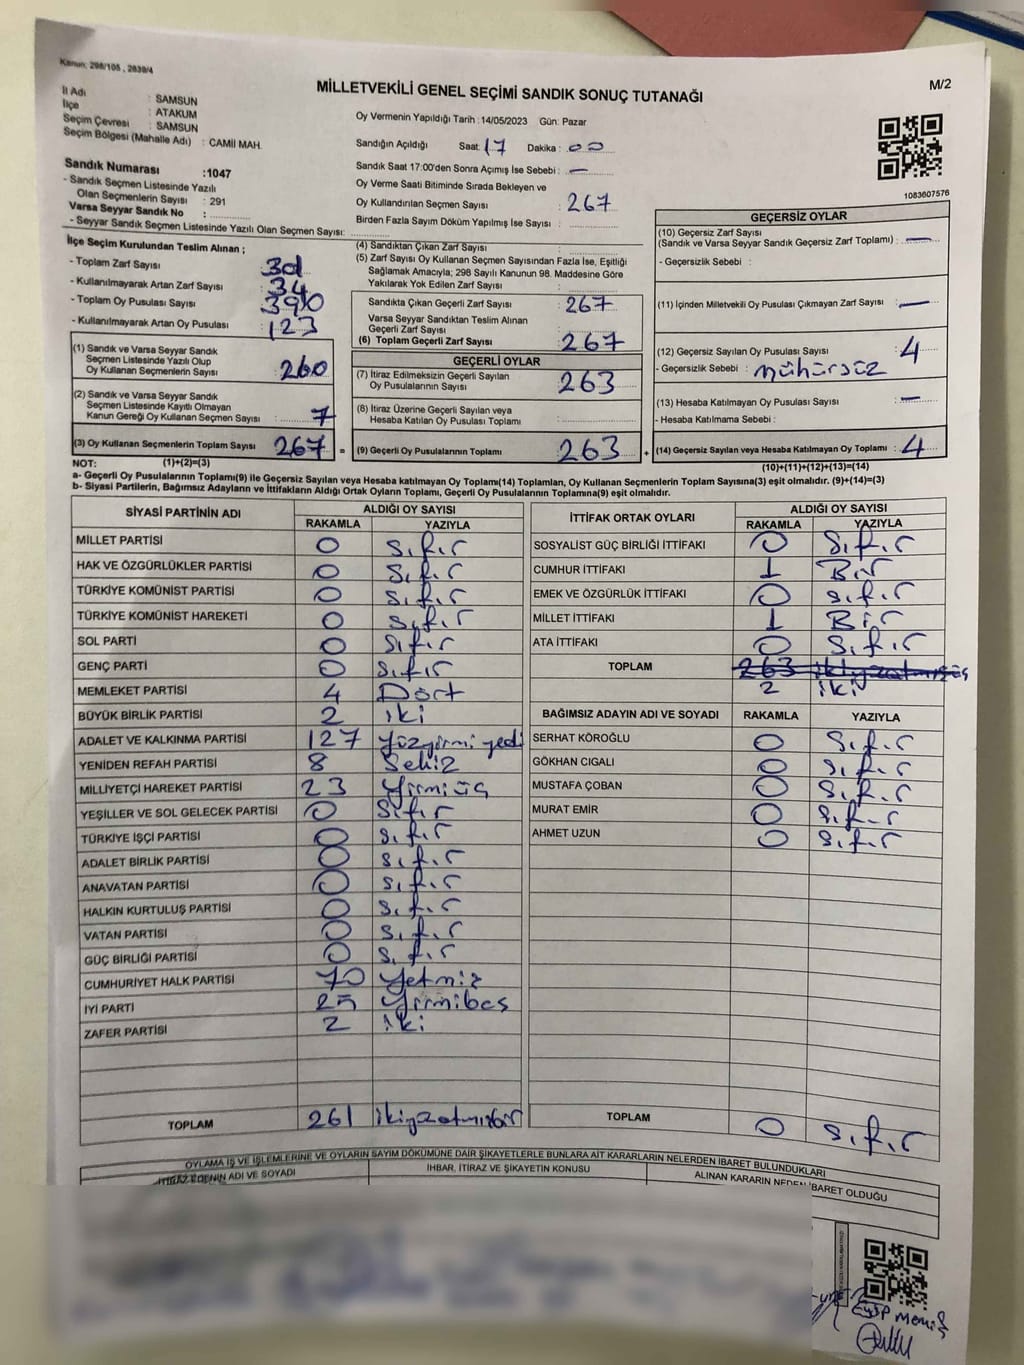 Kanun: 298/105 , 2839/4
MİLLETVEKİLİ GENEL SEÇİMİ SANDIK SONUÇ TUTANAĞI
M/2
İl Adı : SAMSUN
İlçe : ATAKUM
Seçim Çevresi : SAMSUN
Seçim Bölgesi (Mahalle Adı) : CAMİİ MAH.
Sandık Numarası :1047
- Sandık Seçmen Listesinde Yazılı
Olan Seçmenlerin Sayısı : 291
Varsa Seyyar Sandık No :
- Seyyar Sandık Seçmen Listesinde Yazılı Olan Seçmen Sayısı:
Oy Vermenin Yapıldığı Tarih :14/05/2023 Gün: Pazar
Sandığın Açıldığı Saat: 17 Dakika : 00
Sandık Saat 17:00'den Sonra Açımış İse Sebebi : —
Oy Verme Saati Bitiminde Sırada Bekleyen ve
Oy Kullandırılan Seçmen Sayısı : 267
Birden Fazla Sayım Döküm Yapılmış İse Sayısı :
1083607576
İlçe Seçim Kurulundan Teslim Alınan ;
- Toplam Zarf Sayısı :
- Kullanılmayarak Artan Zarf Sayısı : 34
- Toplam Oy Pusulası Sayısı : 390
- Kullanılmayarak Artan Oy Pusulası : 123
(1) Sandık ve Varsa Seyyar Sandık
Seçmen Listesinde Yazılı Olup
Oy Kullanan Seçmenlerin Sayısı : 260
(2) Sandık ve Varsa Seyyar Sandık
Seçmen Listesinde Kayıtlı Olmayan
Kanun Gereği Oy Kullanan Seçmen Sayısı : 7
(3) Oy Kullanan Seçmenlerin Toplam Sayısı 267 =
(4) Sandıktan Çıkan Zarf Sayısı :
(5) Zarf Sayısı Oy Kullanan Seçmen Sayısından Fazla İse, Eşitliği
Sağlamak Amacıyla; 298 Sayılı Kanunun 98. Maddesine Göre
Yakılarak Yok Edilen Zarf Sayısı :
Sandıkta Çıkan Geçerli Zarf Sayısı : 267
Varsa Seyyar Sandıktan Teslim Alınan
Geçerli Zarf Sayısı :
(6) Toplam Geçerli Zarf Sayısı : 267
GEÇERLİ OYLAR
(7) İtiraz Edilmeksizin Geçerli Sayılan
Oy Pusulalarının Sayısı : 263
(8) İtiraz Üzerine Geçerli Sayılan veya
Hesaba Katılan Oy Pusulası Toplamı :
(9) Geçerli Oy Pusulalarının Toplamı : 263 +
GEÇERSİZ OYLAR
(10) Geçersiz Zarf Sayısı
(Sandık ve Varsa Seyyar Sandık Geçersiz Zarf Toplamı) : —
- Geçersizlik Sebebi :
(11) İçinden Milletvekili Oy Pusulası Çıkmayan Zarf Sayısı : —
(12) Geçersiz Sayılan Oy Pusulası Sayısı : 4
- Geçersizlik Sebebi : mühürsüz
(13) Hesaba Katılmayan Oy Pusulası Sayısı : —
- Hesaba Katılmama Sebebi :
(14) Geçersiz Sayılan veya Hesaba Katılmayan Oy Toplamı : 4
NOT: (1)+(2)=(3) (10)+(11)+(12)+(13)=(14)
a- Geçerli Oy Pusulalarının Toplamı(9) ile Geçersiz Sayılan veya Hesaba katılmayan Oy Toplamı(14) Toplamları, Oy Kullanan Seçmenlerin Toplam Sayısına(3) eşit olmalıdır. (9)+(14)=(3)
b- Siyasi Partilerin, Bağımsız Adayların ve İttifakların Aldığı Ortak Oyların Toplamı, Geçerli Oy Pusulalarının Toplamına(9) eşit olmalıdır.
SİYASİ PARTİNİN ADI ALDIĞI OY SAYISI
RAKAMLA YAZIYLA
MİLLET PARTİSİ 0 sıfır
HAK VE ÖZGÜRLÜKLER PARTİSİ 0 sıfır
TÜRKİYE KOMÜNİST PARTİSİ 0 sıfır
TÜRKİYE KOMÜNİST HAREKETİ 0 sıfır
SOL PARTİ 0 sıfır
GENÇ PARTİ 0 sıfır
MEMLEKET PARTİSİ 4 Dört
BÜYÜK BİRLİK PARTİSİ 2 iki
ADALET VE KALKINMA PARTİSİ 127 yüzyirmi yedi
YENİDEN REFAH PARTİSİ 8 Sekiz
MİLLİYETÇİ HAREKET PARTİSİ 23 Yirmiüç
YEŞİLLER VE SOL GELECEK PARTİSİ 0 Sıfır
TÜRKİYE İŞÇİ PARTİSİ 0 sıfır
ADALET BİRLİK PARTİSİ 0 sıfır
ANAVATAN PARTİSİ 0 sıfır
HALKIN KURTULUŞ PARTİSİ 0 sıfır
VATAN PARTİSİ 0 sıfır
GÜÇ BİRLİĞİ PARTİSİ 0 sıfır
CUMHURİYET HALK PARTİSİ 70 Yetmiz
İYİ PARTİ 25 Yirmibeş
ZAFER PARTİSİ 2 iki
TOPLAM 261 ikiyzatmızbir
İTTİFAK ORTAK OYLARI ALDIĞI OY SAYISI
RAKAMLA YAZIYLA
SOSYALİST GÜÇ BİRLİĞİ İTTİFAKI 0 Sıfır
CUMHUR İTTİFAKI 1 Bir
EMEK VE ÖZGÜRLÜK İTTİFAKI 0 sıfır
MİLLET İTTİFAKI 1 Bir
ATA İTTİFAKI 0 Sıfır
TOPLAM 263
2 iki
BAĞIMSIZ ADAYIN ADI VE SOYADI RAKAMLA YAZIYLA
SERHAT KÖROĞLU 0 Sıfır
GÖKHAN CIGALI 0 sıfır
MUSTAFA ÇOBAN 0 sıfır
MURAT EMİR 0 sıfır
AHMET UZUN 0 sıfır
TOPLAM 0 sıfır
OYLAMA İŞ VE İŞLEMLERİNE VE OYLARIN SAYIM DÖKÜMÜNE DAİR ŞİKAYETLERLE BUNLARA AİT KARARLARIN NELERDEN İBARET BULUNDUKLARI
İTİRAZ EDENİN ADI VE SOYADI İHBAR, İTİRAZ VE ŞİKAYETİN KONUSU ALINAN KARARIN NEDEN İBARET OLDUĞU